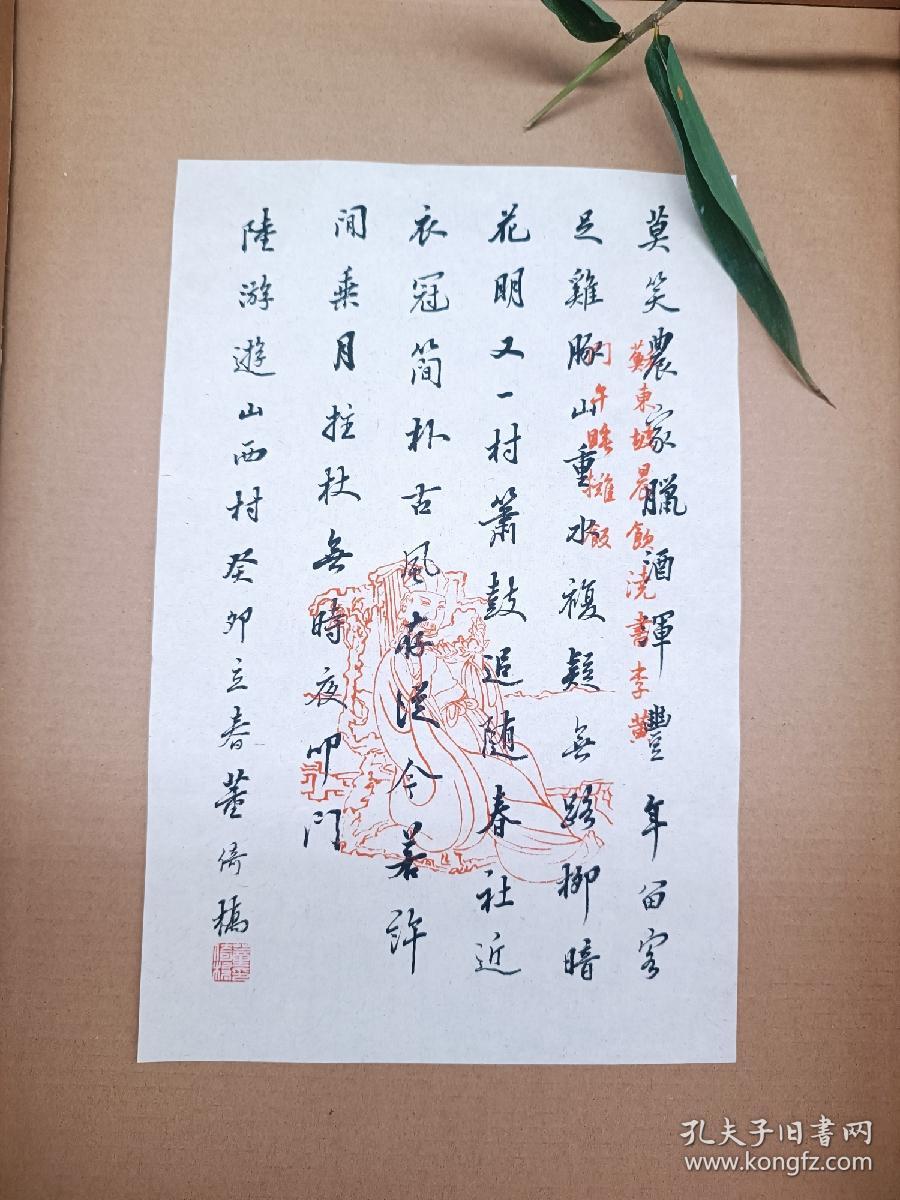 莫笑農家臘酒渾豐年留客
足雞豚山重水複疑無路柳暗
花明又一村簫鼓追随春社近
衣冠簡朴古風存從今若許
閒乘月拄杖無時夜叩門
陸游遊山西村癸卯立春董倚橋
蘇東坡晨飲澆書李黃
門午睡攤飯
孔夫子旧书网
www.kongfz.com